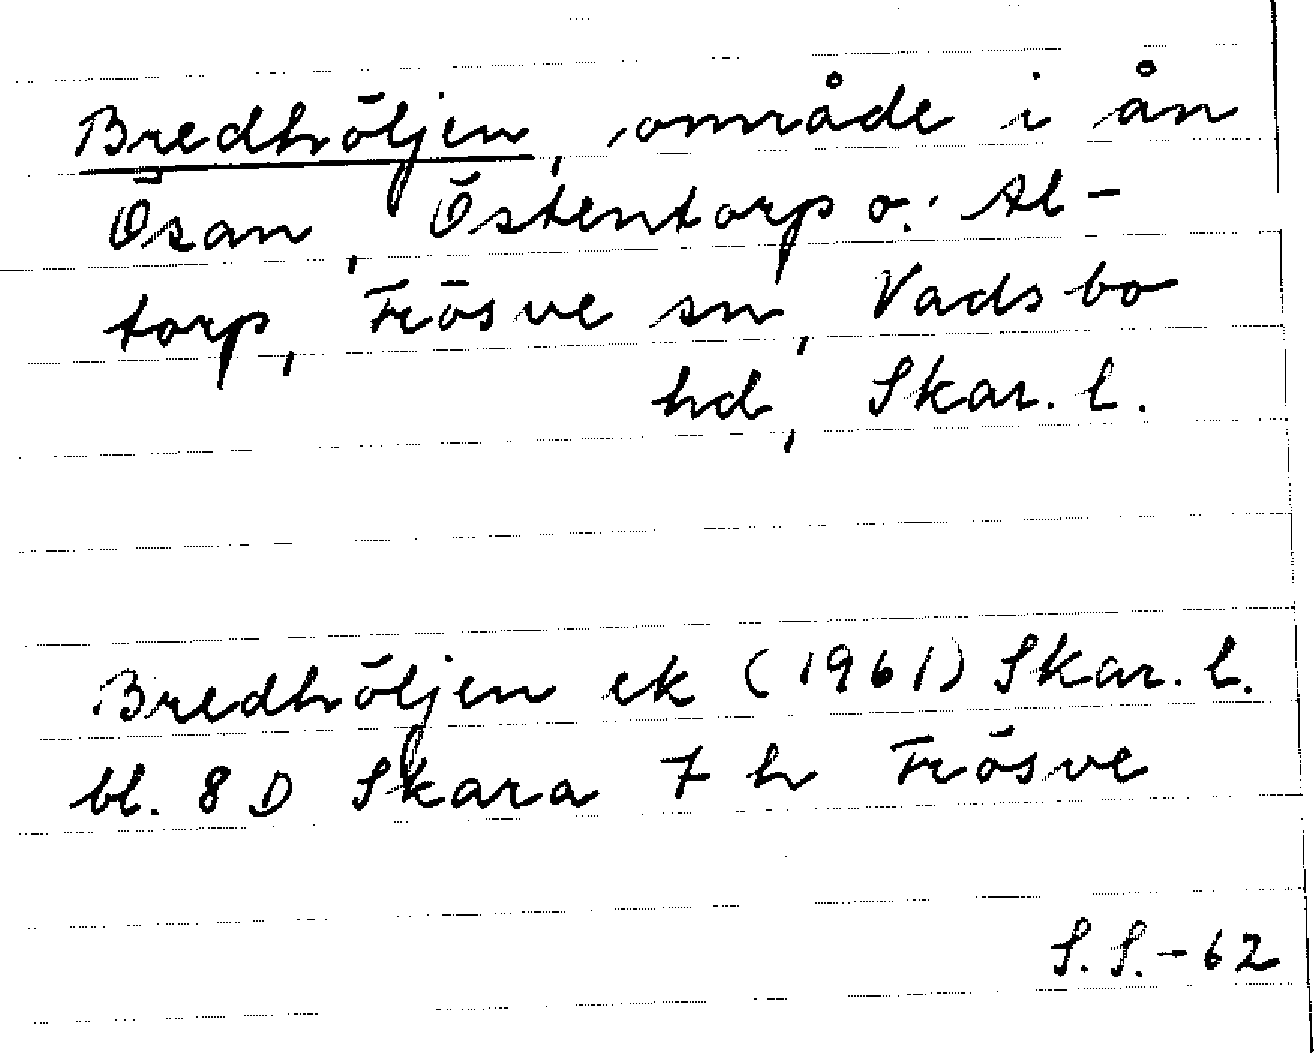 Bredhöljen, område i ån
Ösan, Östentorp o. Al-
torp, Frösve sn, Vadsbo
hd, Skar. l.
Bredhöljen ek (1961) Skar. l.
bl. 8 D Skara 7 h Frösve
S.S.-62